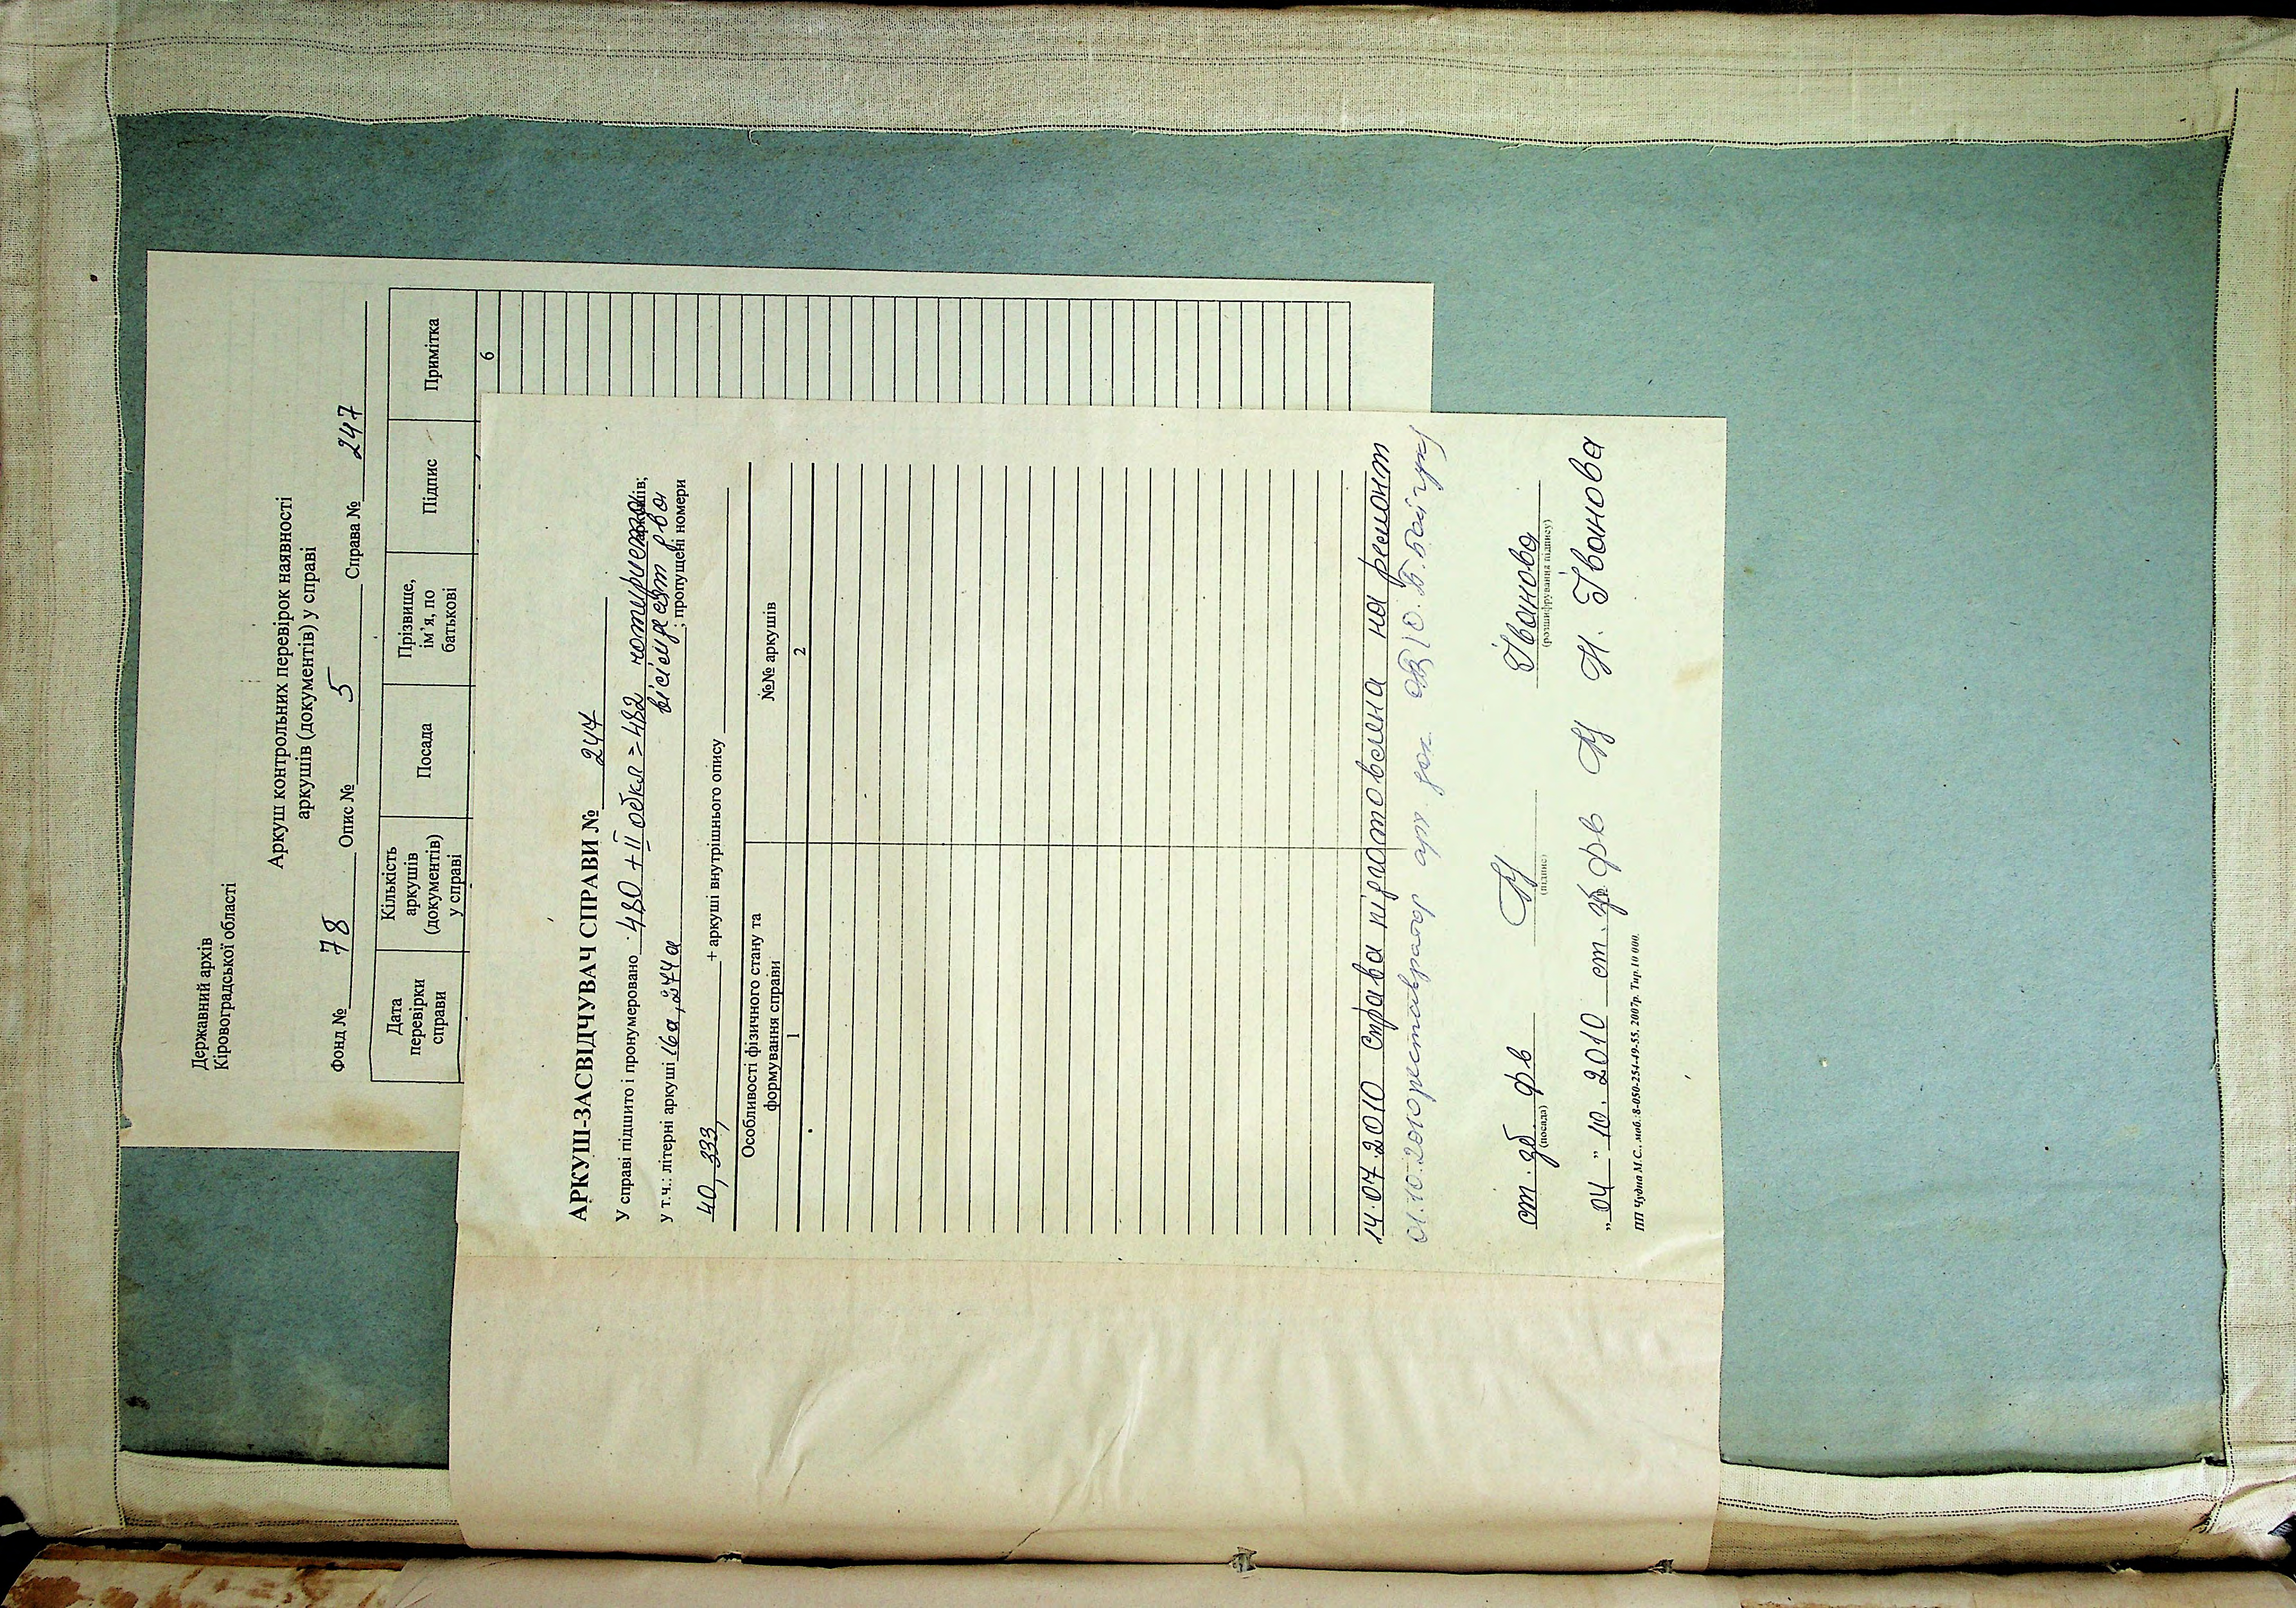 Державний архів
Кіровоградської області
Аркуш контрольних перевірок наявності
аркушів (документів) у справі
Фонд № 78 Опис № 5 Справа № 247
Дата перевірки справи
Кількість аркушів (документів) у справі
Посада
Прізвище, ім’я, по батькові
Підпис
Примітка
6
АРКУШ-ЗАСВІДЧУВАЧ СПРАВИ № 247
У справі підшито і пронумеровано 480 + II обкл = 482 чотириста аркушів;
вісімдесят два
у т.ч.: літерні аркуші 16а, 274а ; пропущені номери
40, 333, + аркуші внутрішнього опису
Особливості фізичного стану та формування справи
№№ аркушів
1 2
14.07.2010 Справа підготовлена на ремонт
01.10.2010 реставратор арх. док.
ст. зб. фв Іванова
(посада) (підпис) (розшифрування підпису)
„04” 10. 2010 ст. зб. фв Н. Іванова
ПП Чудна М.С., моб.:8-050-254-49-55, 2007р. Тир.10 000.